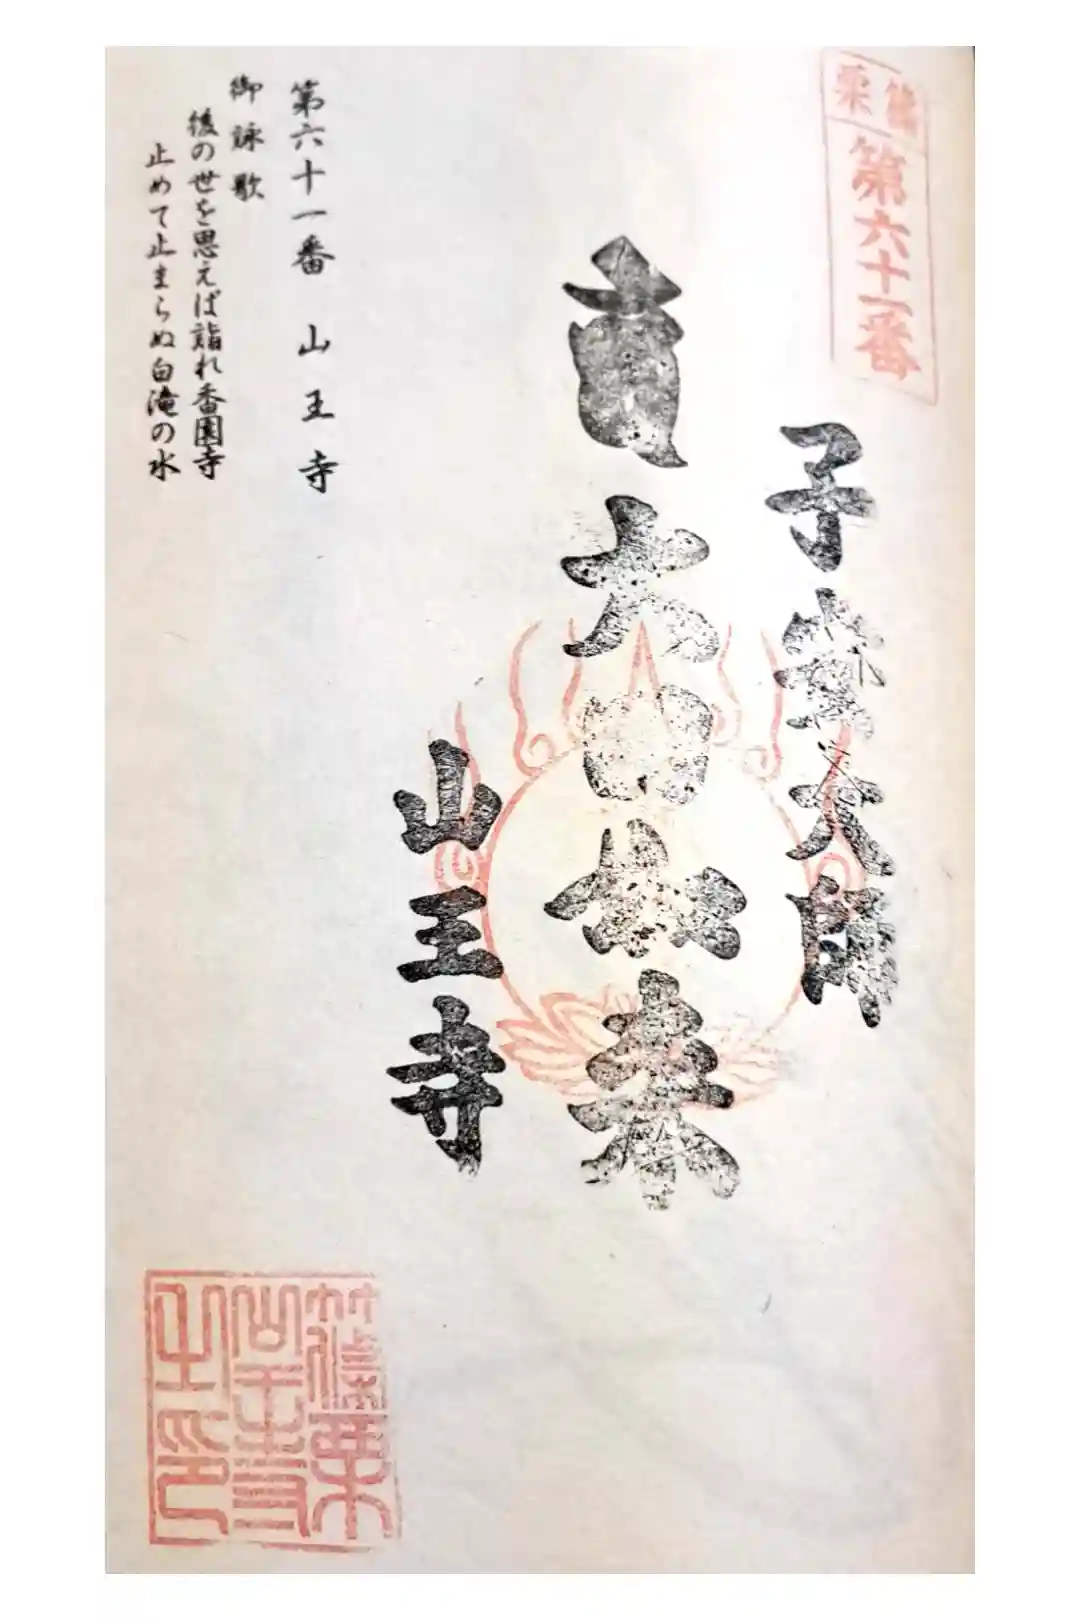 篠栗
第六十一番
子安大師
大日如来
山王寺
第六十一番 山王寺
御詠歌
後の世を思えば詣れ香園寺
止めて止まらぬ白滝の水
篠栗
山王寺
之印